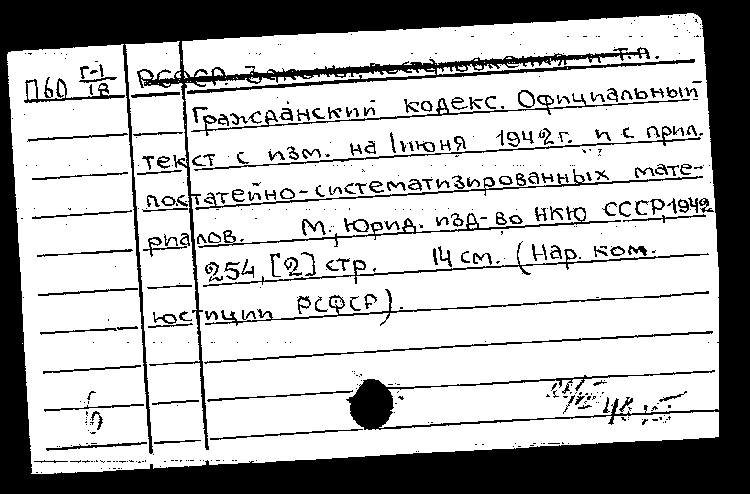 П60 Г-1/18 РСФСР. Законы, постановления и т.п.
Гражданский кодекс. Официальный
текст с изм. на 1 июня 1942 г. и с прил.
постатейно-систематизированных мате-
риалов. М., Юрид. изд-во НКЮ СССР, 1942
254, [2] стр. 14 см. (Нар. ком.
юстиции РСФСР).
б
48